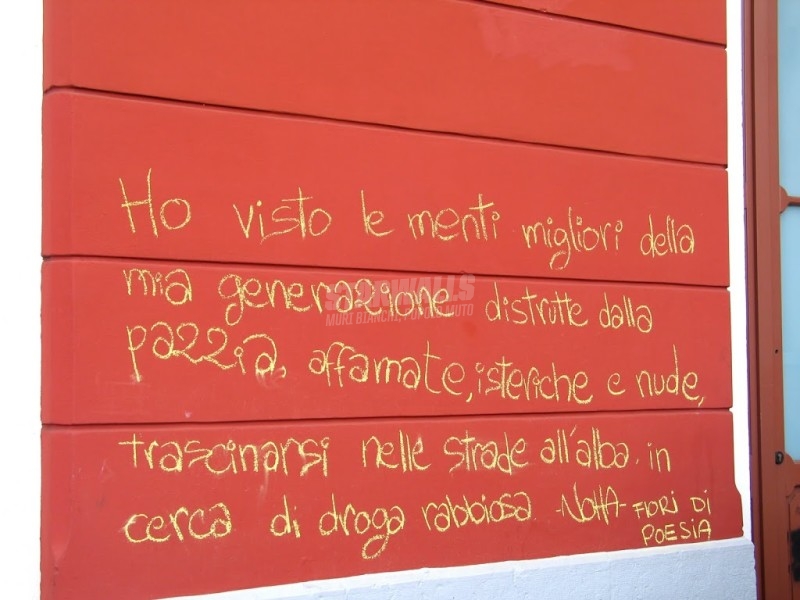 Ho visto le menti migliori della
mia generazione distrutte dalla
pazzia, affamate, isteriche e nude,
trascinarsi nelle strade all'alba. in
cerca di droga rabbiosa -NoHA- FIORI DI
POESIA
STONWALLS
MURI BIANCHI, POPOLO MUTO